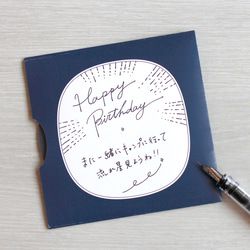 Happy
Birthday
また一緒にキャンプに行って
流れ星見ようね!!